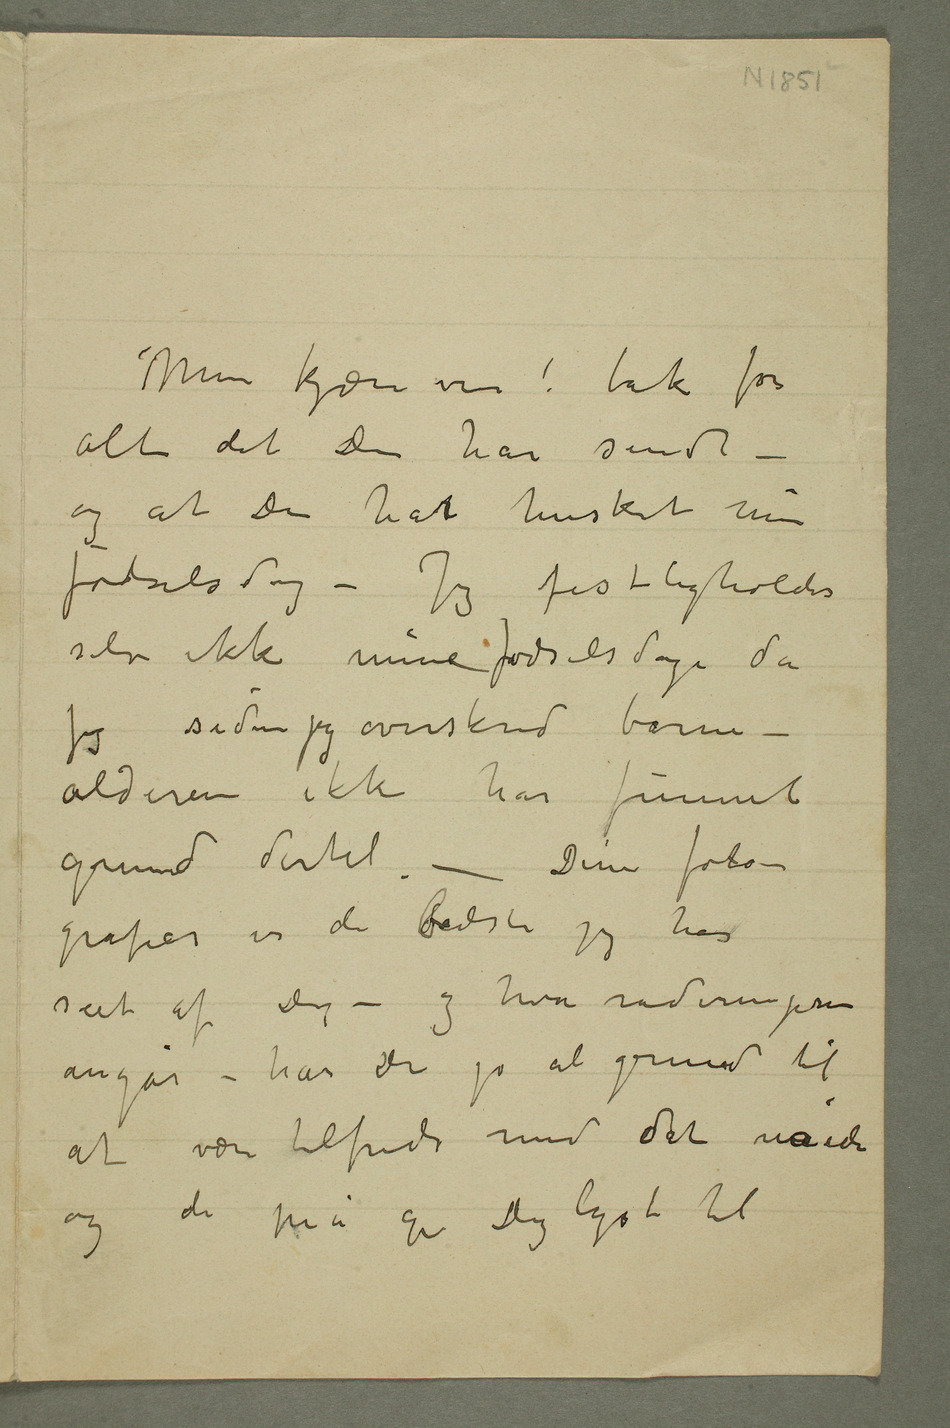 N 1851
Min kjære ven! tak for
alt det Du har sendt –
og at Du hat husket min
fødselsdag – Jeg festligholder
selv ikke mine fødselsdage da
jeg siden jeg overskred barne–
alderen ikke har funnet
grund dertil. — Dine foto–
grafier er de bedste jeg har
seet af Dig – og hva raderingerne
angår – har Du jo al grund til
at være tilfreds med det nåede
og de må gi Dig lyst til